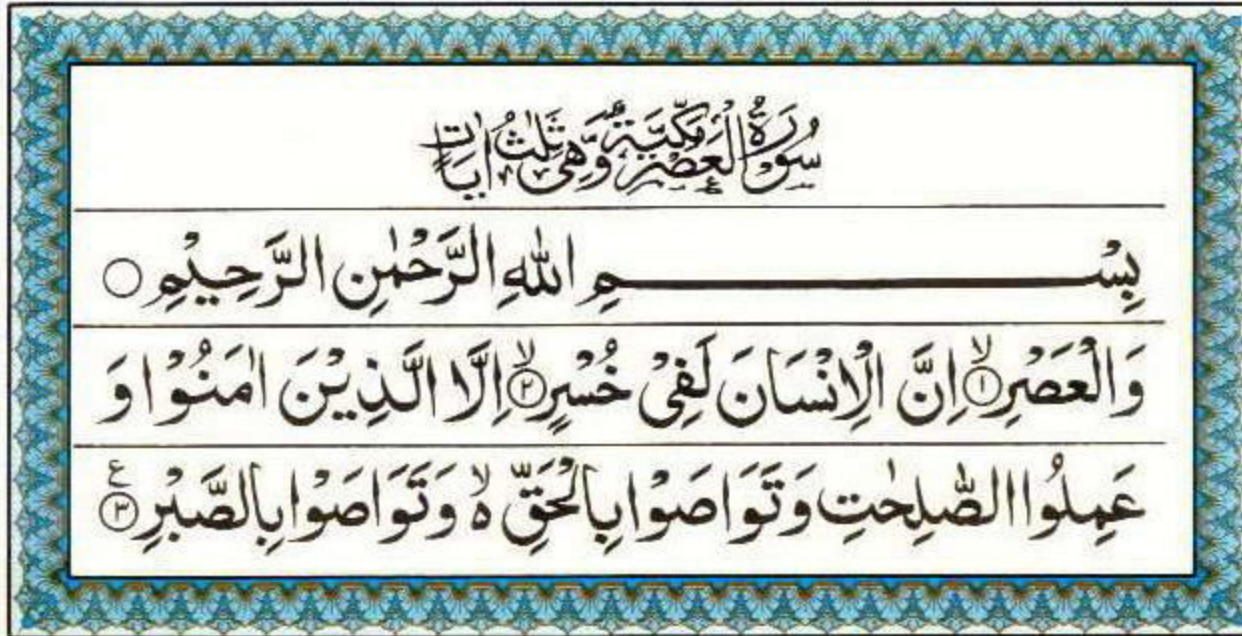 سُوْرَةُ الْعَصْرِ مَكِّيَّةٌ وَّهِىَ ثَلٰثُ اٰيَاتٍ
بِسْمِ اللّٰهِ الرَّحْمٰنِ الرَّحِيْمِ ○
وَالْعَصْرِ ۙ﴿۱﴾ اِنَّ الْاِنْسَانَ لَفِىْ خُسْرٍ ۙ﴿۲﴾ اِلَّا الَّذِيْنَ اٰمَنُوْا وَ
عَمِلُوا الصّٰلِحٰتِ وَتَوَاصَوْا بِالْحَقِّ ۙ۬ وَتَوَاصَوْا بِالصَّبْرِ ﴿۳﴾ ع